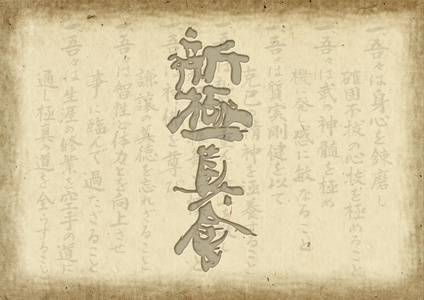 新極真会
一吾々は身心を錬磨
確固不抜の心技を極めること
一吾々は武の神髄を極め
機に発し感に敏なること
一吾々は質実剛健を以て
克己 精神を涵養すること
は神 を尊び
謙譲の美徳を忘れざること
一吾々は智性と体力とを向上させ
事に臨んで過たざること
一吾々は生涯の修業を空手の道に
通じ極真の道を全うすること